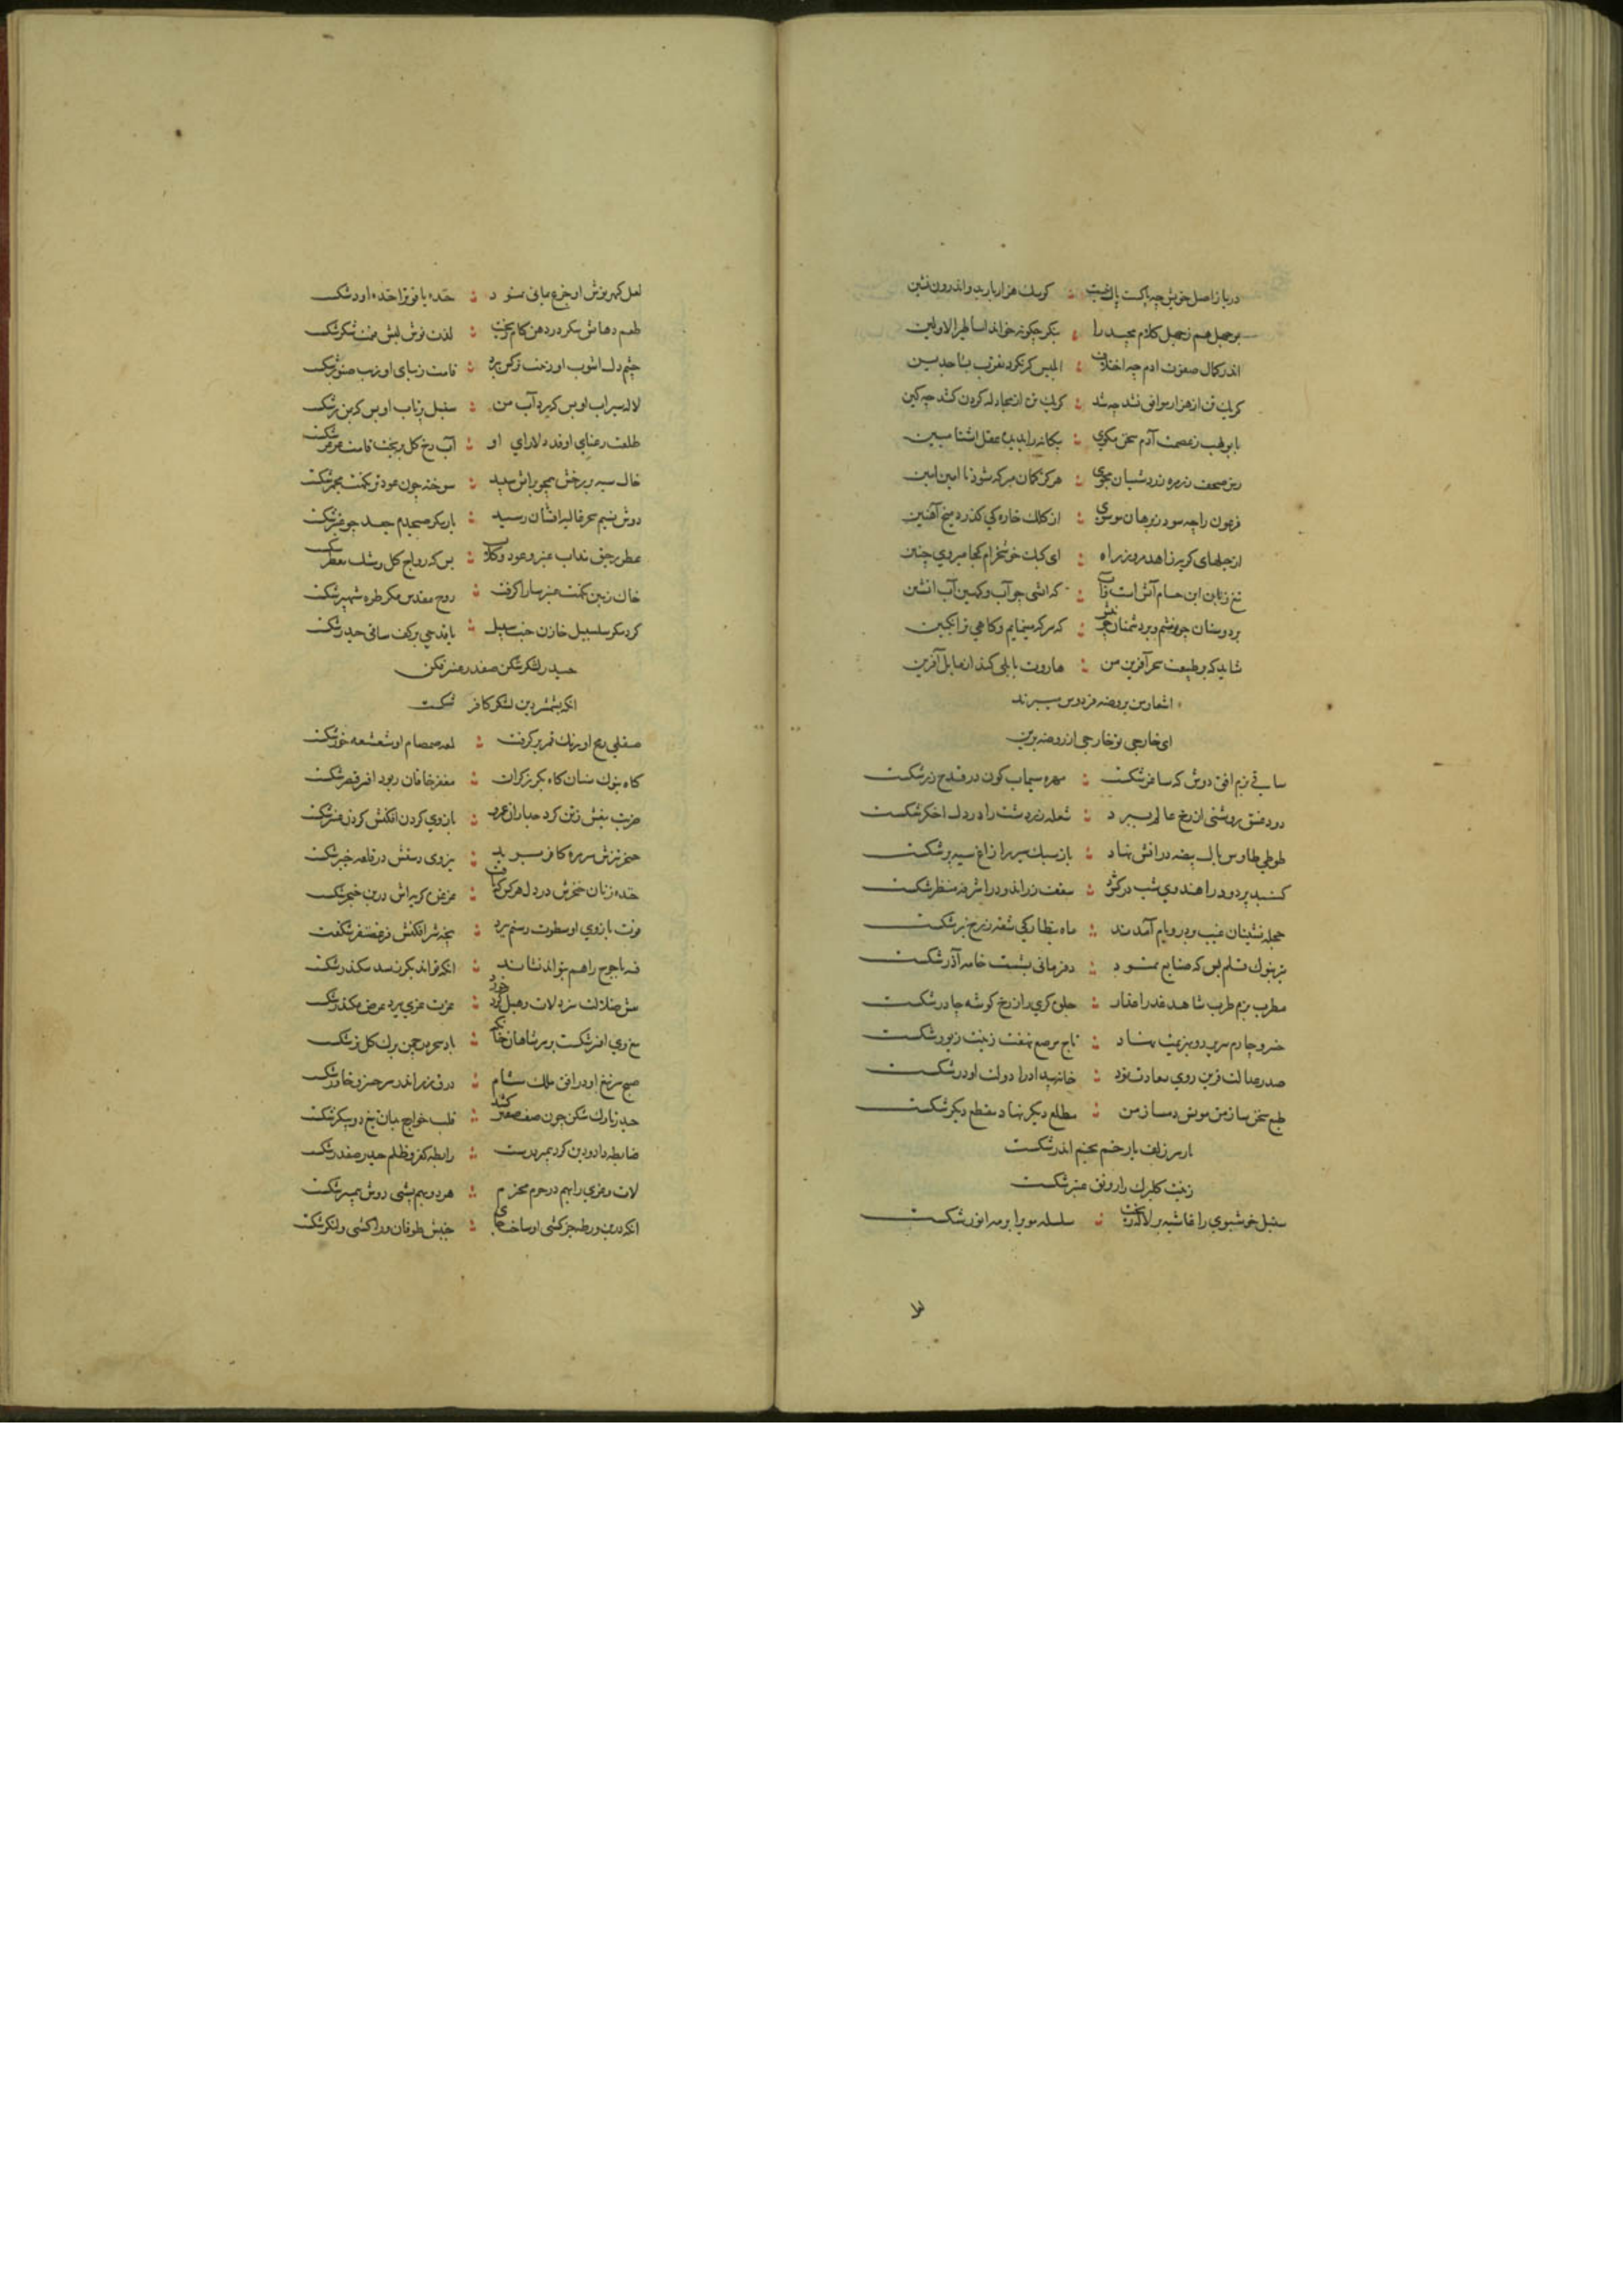 دریا ز اصل خویش چه پاکست پاک نیست : گر سک هزار بار بد و اندرون نشین
بوجهل هم ز جهل کلام مجید را : بنگر چگونه خواند اساطیر الاولین
اندر کمال صفوت ادم چه اختلاف : ابلیس کر نکرد
کر یک تن از هزار موافق نشد چه شد : کر یک تن از مجادله کردن کشد چه کین
با بولهب ز عصمت آدم سخن مکوی : بیکانه را بدیده عقل اشنا مبین
رمز صحف ز زمره زردشتیان مجوی : هرکز کمان مبر که شود نا امین امین
فرعون را چه سود ز برهان موسوی : از کلک خاره کی کذرد میخ آهنین
از حیلهای کربه زاهد مرو ز راه : ای کبک خوشخرام کجا میروی چنین
تیغ زبان ابن حسام آتش است و آب : که اتشی چو آب و کهی آب اتشین
بر دوستان چو نوشم و بر دشمنان چو نیش : که سرکه مینمایم و کاهی ترانکبین
شاید که بر طبیعت سحر آفرین من : هاروت بابلی کند از بابل آفرین
اشعار من بروضه فردوس میبرند
ای خارجی تو خارجی از روضه برین
ساقی بزم افق دوش که ساغر شکست : مهره سیماب کون در قدح زر شکست
دود غسق روشنی از رخ عالم ببرد : شعله زردشت را در دل اخکر شکست
طوطی طاوس بال بیضه در اتش نهاد : باز سبک سیر را زاغ سیه پر شکست
کنبد پر دود را هندوی شب در کشود : سقف زر اندود را شرفه منظر شکست
حجله نشینان غیب بر در و بام آمدند : ماه بنظارکی شقه ز رخ بر شکست
تیر بنوک قلم بس که صنایع نمود : دفتر مانی بشست خامه آذر شکست
مطرب بزم طرب شاهد عذرا عذار : جلوه کری را ز رخ کوشه چادر شکست
خسرو چارم سریر رو بهزیمت نهاد : تاج مرصع نهفت زینت زیور شکست
صدر صدالت قرین روی سعادت نمود : خانه بیداد را دولت او در شکست
طبع سخن ساز من مونس دمساز من : مطلع دیکر نهاد مقطع دیکر شکست
باز سر زلف یار خم بخم اندر شکست
زینت کلبرک را رونق عنبر شکست
سنبل خوشبوی را غاشیه بر لاله ریخت : سلسله موی را بر مه انور شکست
لعل
لعل کهر پوش او جزع یمانی نمود : حقه یاقوت را خنده او در شکست
طعم دهانش شکر در دهن کام ریخت : لذت نوش لبش قیمت شکر شکست
چشم دل اشوب او زینت نرکس ببرد : قامت زیبای او زیب صنوبر شکست
لاله سیراب او بس که برد آب من : سنبل پرتاب او بس که بهن بر شکست
طلعت رعنای او قد دلارای او : آب رخ کل بریخت قامت عرعر شکست
خال سیه بر رخش همچو بر اتش سپند : سوخته چون عود تر نکهت مجمر شکست
دوش نسیم سحر غالیه افشان رسید : یار مکر صبحدم جعد چو عنبر شکست
عطر بر حق نداب عنبر و عود و کلاب : بس که رواج کل و مشک معطر شکست
خاک زمین نکهت عنبر سارا کرفت : روح مقدس مکر طره شهپر شکست
کرد مکر سلسبیل خازن جنت سبیل : یا قدح می بر کف ساقی حیدر شکست
حیدر لشکر شکن صفدر عنتر فکن
انکه بشمشیر دین لشکر کافر شکست
صیقلی رمح او رنک قمر بر کرفت : لمعه صمصام او شعشعه خور شکست
کاه بنوک سنان کاه بکرز کران : مغفر خاقان ربود افسر قیصر شکست
ضرب بنفش زتن کرد جدا ران عمرو : بازوی کردن افکنش کردن عنتر شکست
خنجر تیزش سر زمره کافر برید : نیروی دستش در قلعه خیبر شکست
خنده زنان خنجرش در دل هر کس که رفت : خون کریه اش در بن خنجر شکست
قوت بازوی او سطوت رستم ببرد : پنجه شیر افکنش فر غضنفر شکست
فتنه یاجوج را هم بتواند نشاند : انکه تواند بکرز سد سکندر شکست
نقش ضلالت سترد لات و هبل کرد خرد : عزت عزی ببرد
تیغ وی افسر شکست بر سر شاهان خاک : باد سحر در چمن برک کل تر شکست
صبح سر تیغ او در افق ملک شام : رونق زر اندر سر خسرو خاور شکست
حیدر تارک شکن چون صف صفین کشید : قلب خوارج بدان تیغ دو پیکر شکست
ضابطه داد و دین کرد پیمبر درست : رابطه کفر و ظلم حیدر صفدر شکست
لات و عزی را بهم در حرم محترم : هر دو بهم پشتی دوش پیمبر شکست
انکه درین ورطه جز کشتی او ساخت جای : جنبش طوفان ورا کشتی و لنکر شکست